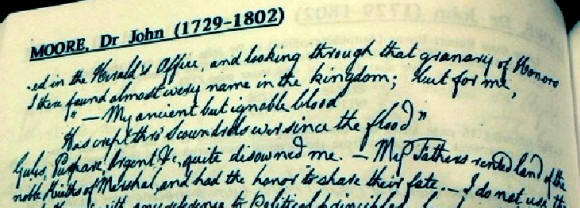 MOORE, Dr John (1729-1802)
-ed in the Herald's Office, and looking through that granary of Honors
I there found almost every name in the kingdom; but for me,
" — My ancient but ignoble blood
Has crept thro' Scoundrels ever since the flood"
Gules, Purpure, Argent &c, quite disowned me. — My Fathers rented land of the
noble Kieths of Marshal, and had the honor to share their fate. — I do not use the
with any reference to Political principles